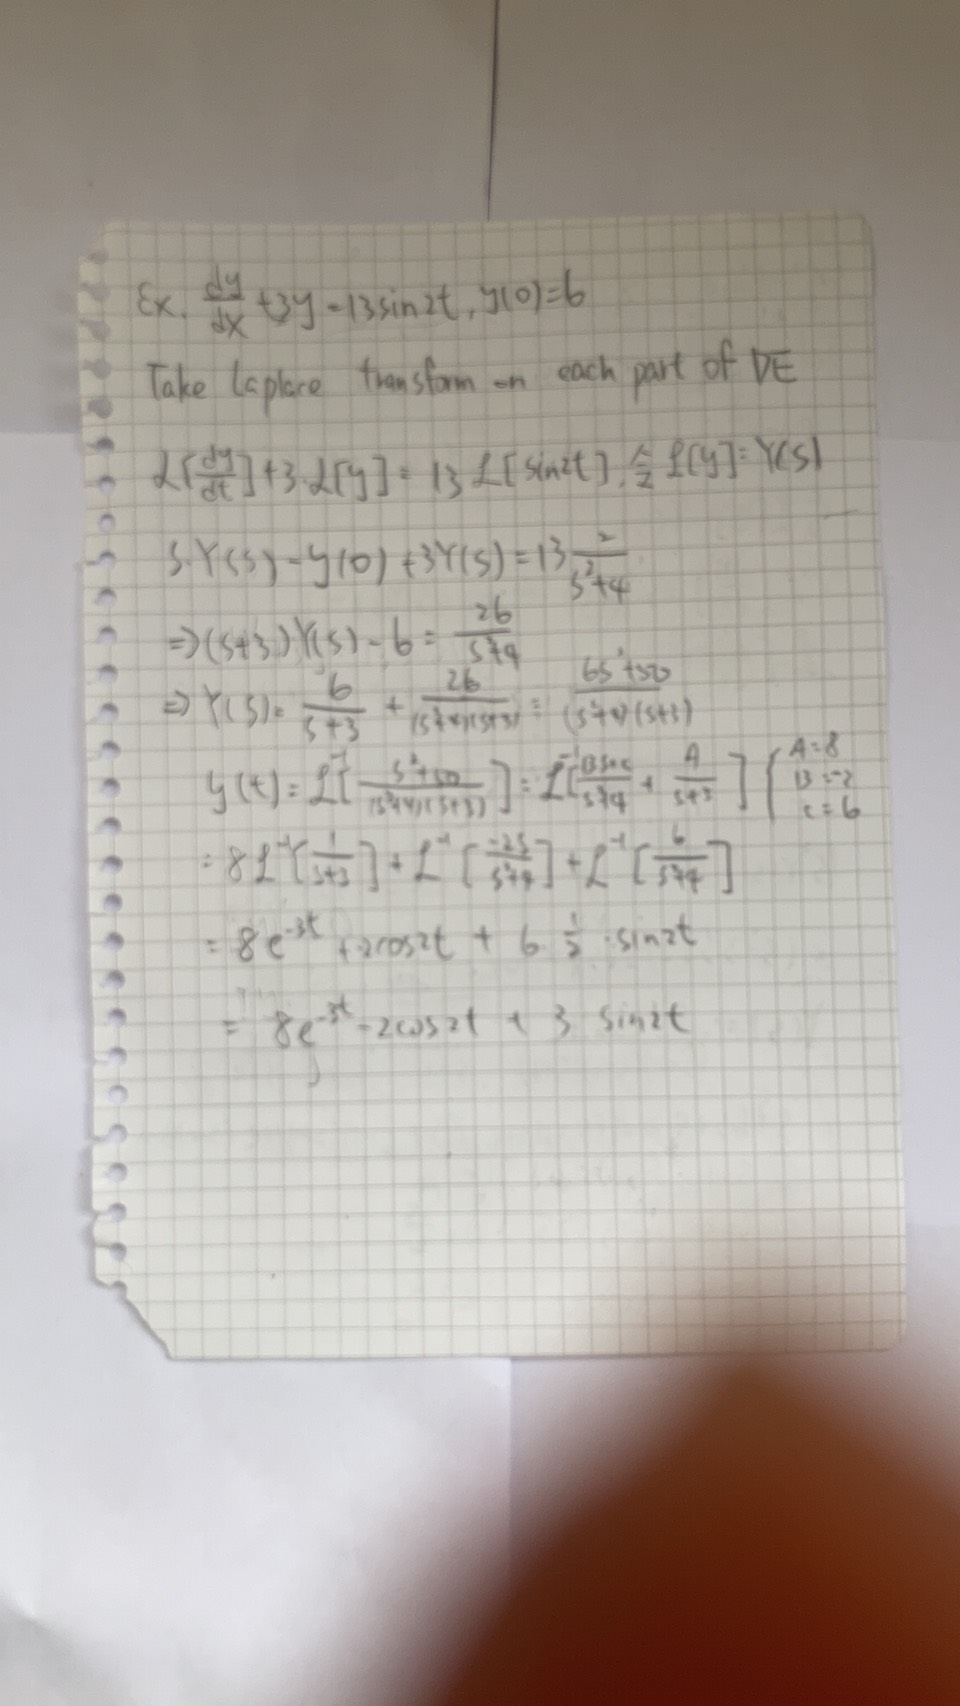 Ex. dy/dx +3y = 13sin2t, y(0)=6
Take Laplace transform on each part of DE
ℒ[dy/dt]+3·ℒ[y] = 13 ℒ[sin2t], 令 ℒ[y]=Y(s)
s·Y(s) - y(0) + 3Y(s) = 13 2/(s²+4)
⇒ (s+3)Y(s) - 6 = 26/(s²+4)
⇒ Y(s) = 6/(s+3) + 26/((s²+4)(s+3)) = (6s²+50)/((s²+4)(s+3))
y(t) = ℒ⁻¹[(s²+50)/((s²+4)(s+3))] = ℒ⁻¹[(Bs+c)/(s²+4) + A/(s+3)] { A=8
B=-2
c=6
= 8ℒ⁻¹[1/(s+3)] + ℒ⁻¹[-2s/(s²+4)] + ℒ⁻¹[6/(s²+4)]
= 8e^(-3t) + 2cos2t + 6 1/2 · sin2t
= 8e^(-3t) - 2cos2t + 3 sin2t